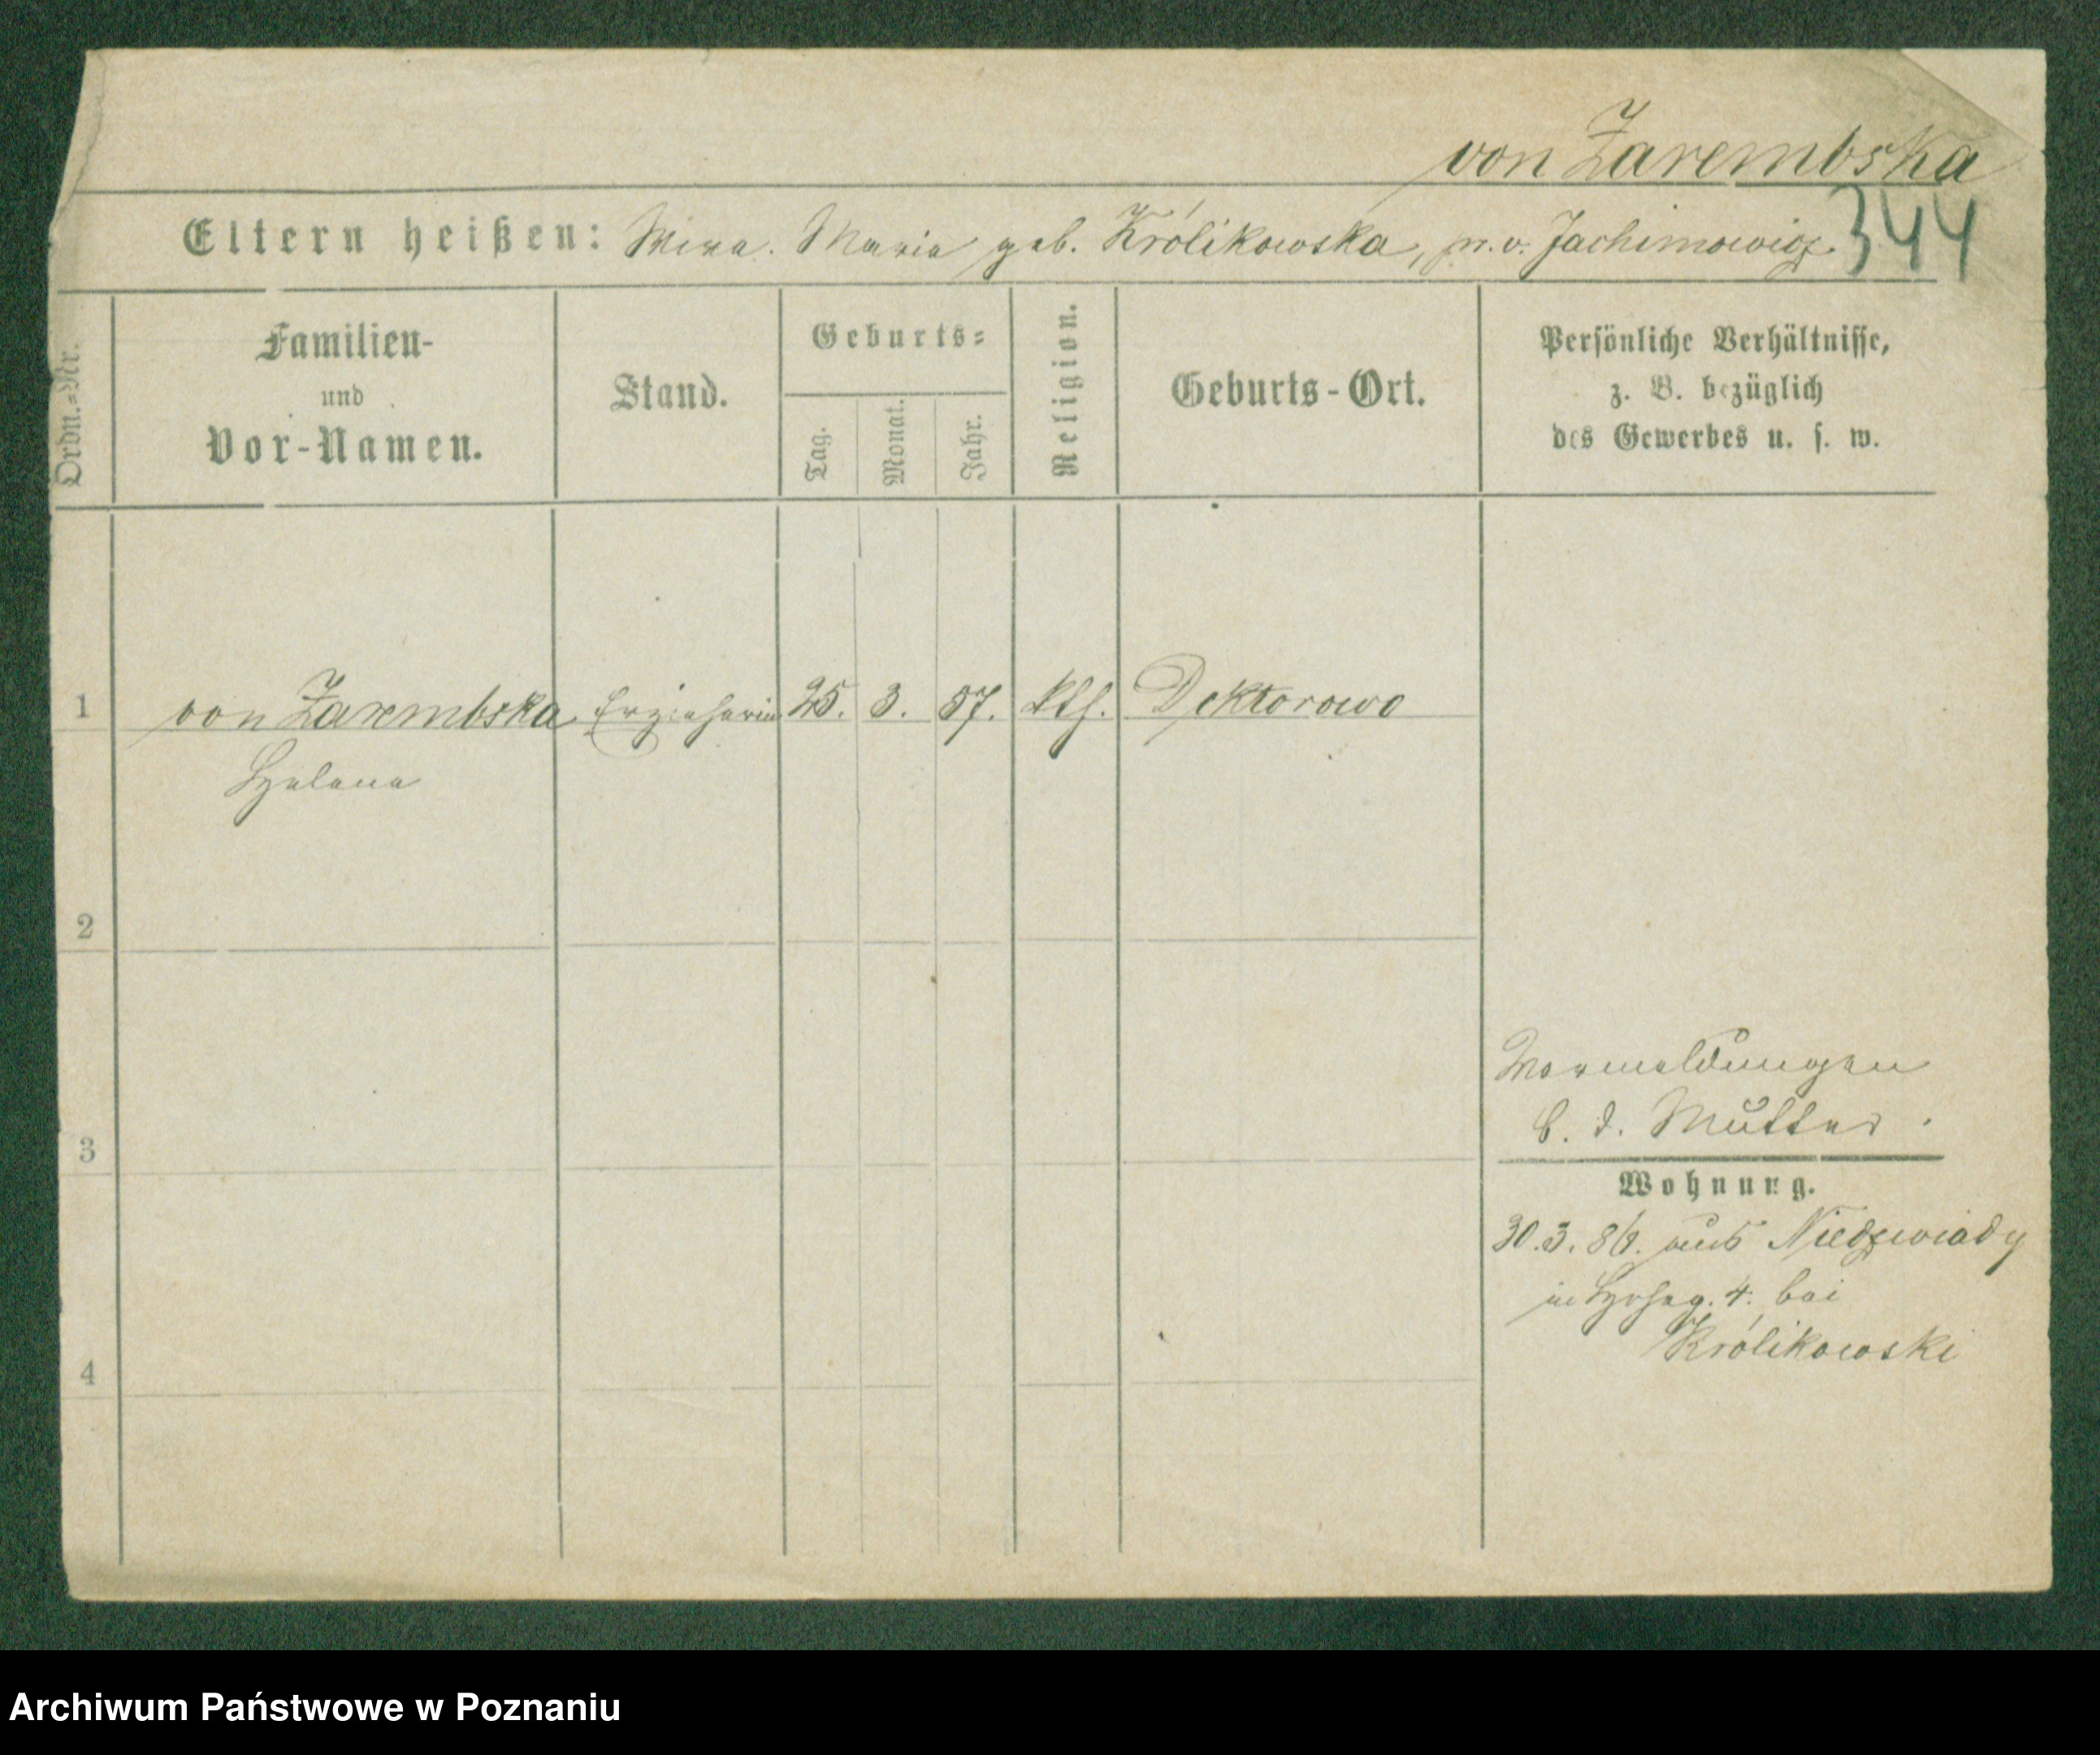 von Zarembska
344
Eltern heißen: Maria geb. Królikowska, pr. v. Jachimowicz.
Ordn.=Nr.
Familien-
und
Vor-Namen.
Stand.
Geburts=
Tag.
Monat.
Jahr.
Religion.
Geburts-Ort.
Persönliche Verhältnisse,
z. B. bezüglich
des Gewerbes u. s. w.
1 von Zarembska Erzieherin 25. 3. 57. kth. Dektorowo
Helena
2
3
4
Vormeldungen
b. d. Mutter.
Wohnung.
30.3.86. aus Niedzwiady
in 4. bei
Królikowski
Archiwum Państwowe w Poznaniu